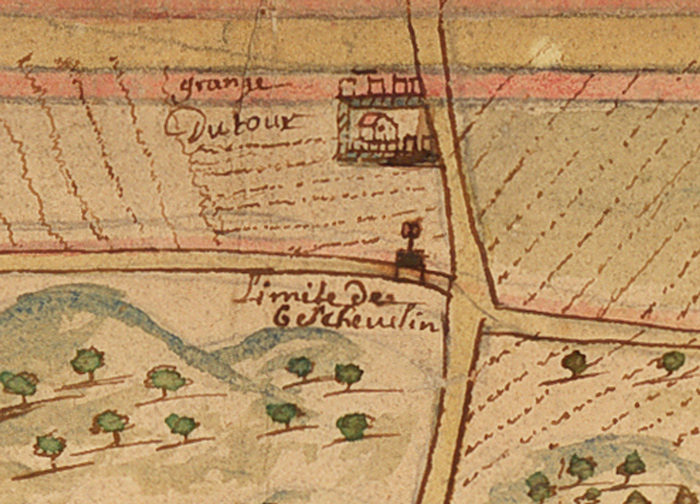 grange
Dutour
Limite de
Gescheulin